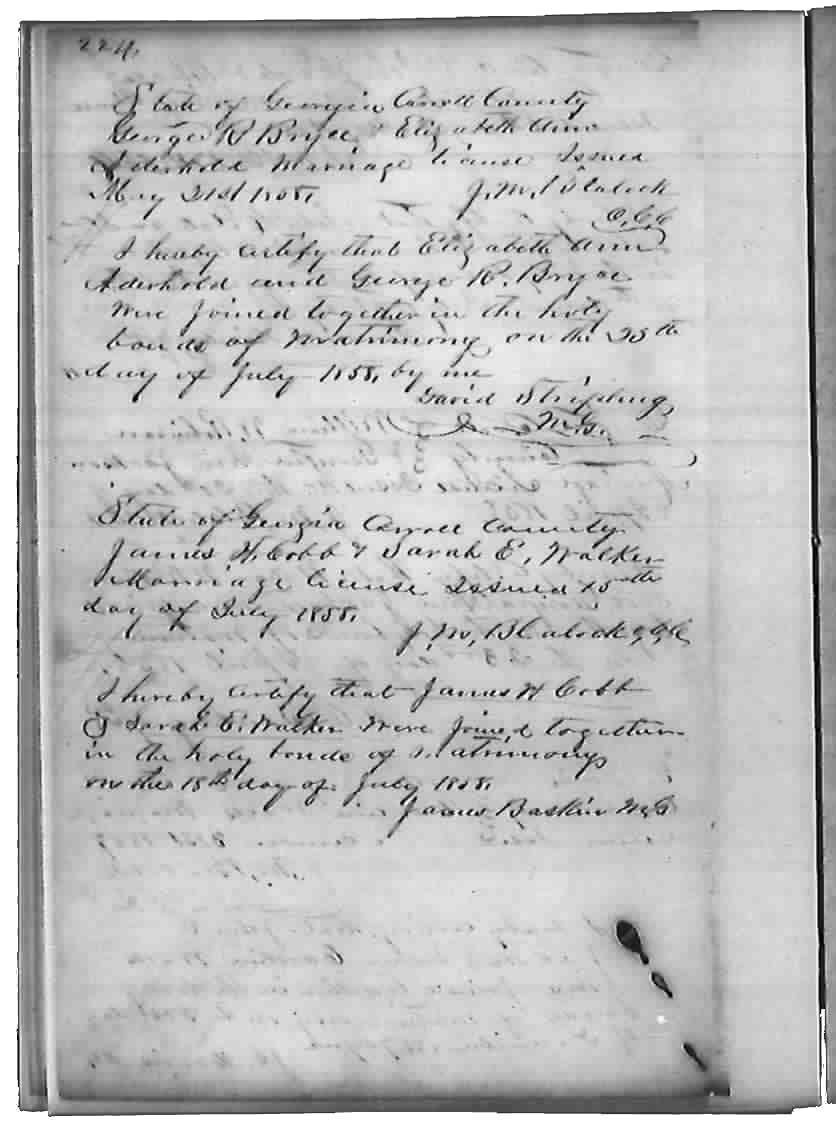 224.
State of Georgia Carroll County
George R Bryce & Elizabeth Ann
Aderhold Marriage license Issued
May 21st 1858, J. M. Blalock
C.C.O
I hereby certify that Elizabeth Ann
Aderhold and George R. Bryce
Were Joined together in the holy
bonds of Matrimony on the 25th
day of July 1858, by me
David Stripling
M.G.
State of Georgia Carroll County
James H. Cobb & Sarah E. Walker
Marriage license Issued 15th
day of July 1858,
J. M, Blalock C.C.O
I hereby certify that James H Cobb
& Sarah E. Walker Were Joined together
in the holy bonds of matrimony
on the 18th day of July 1858,
James Baskin M.G